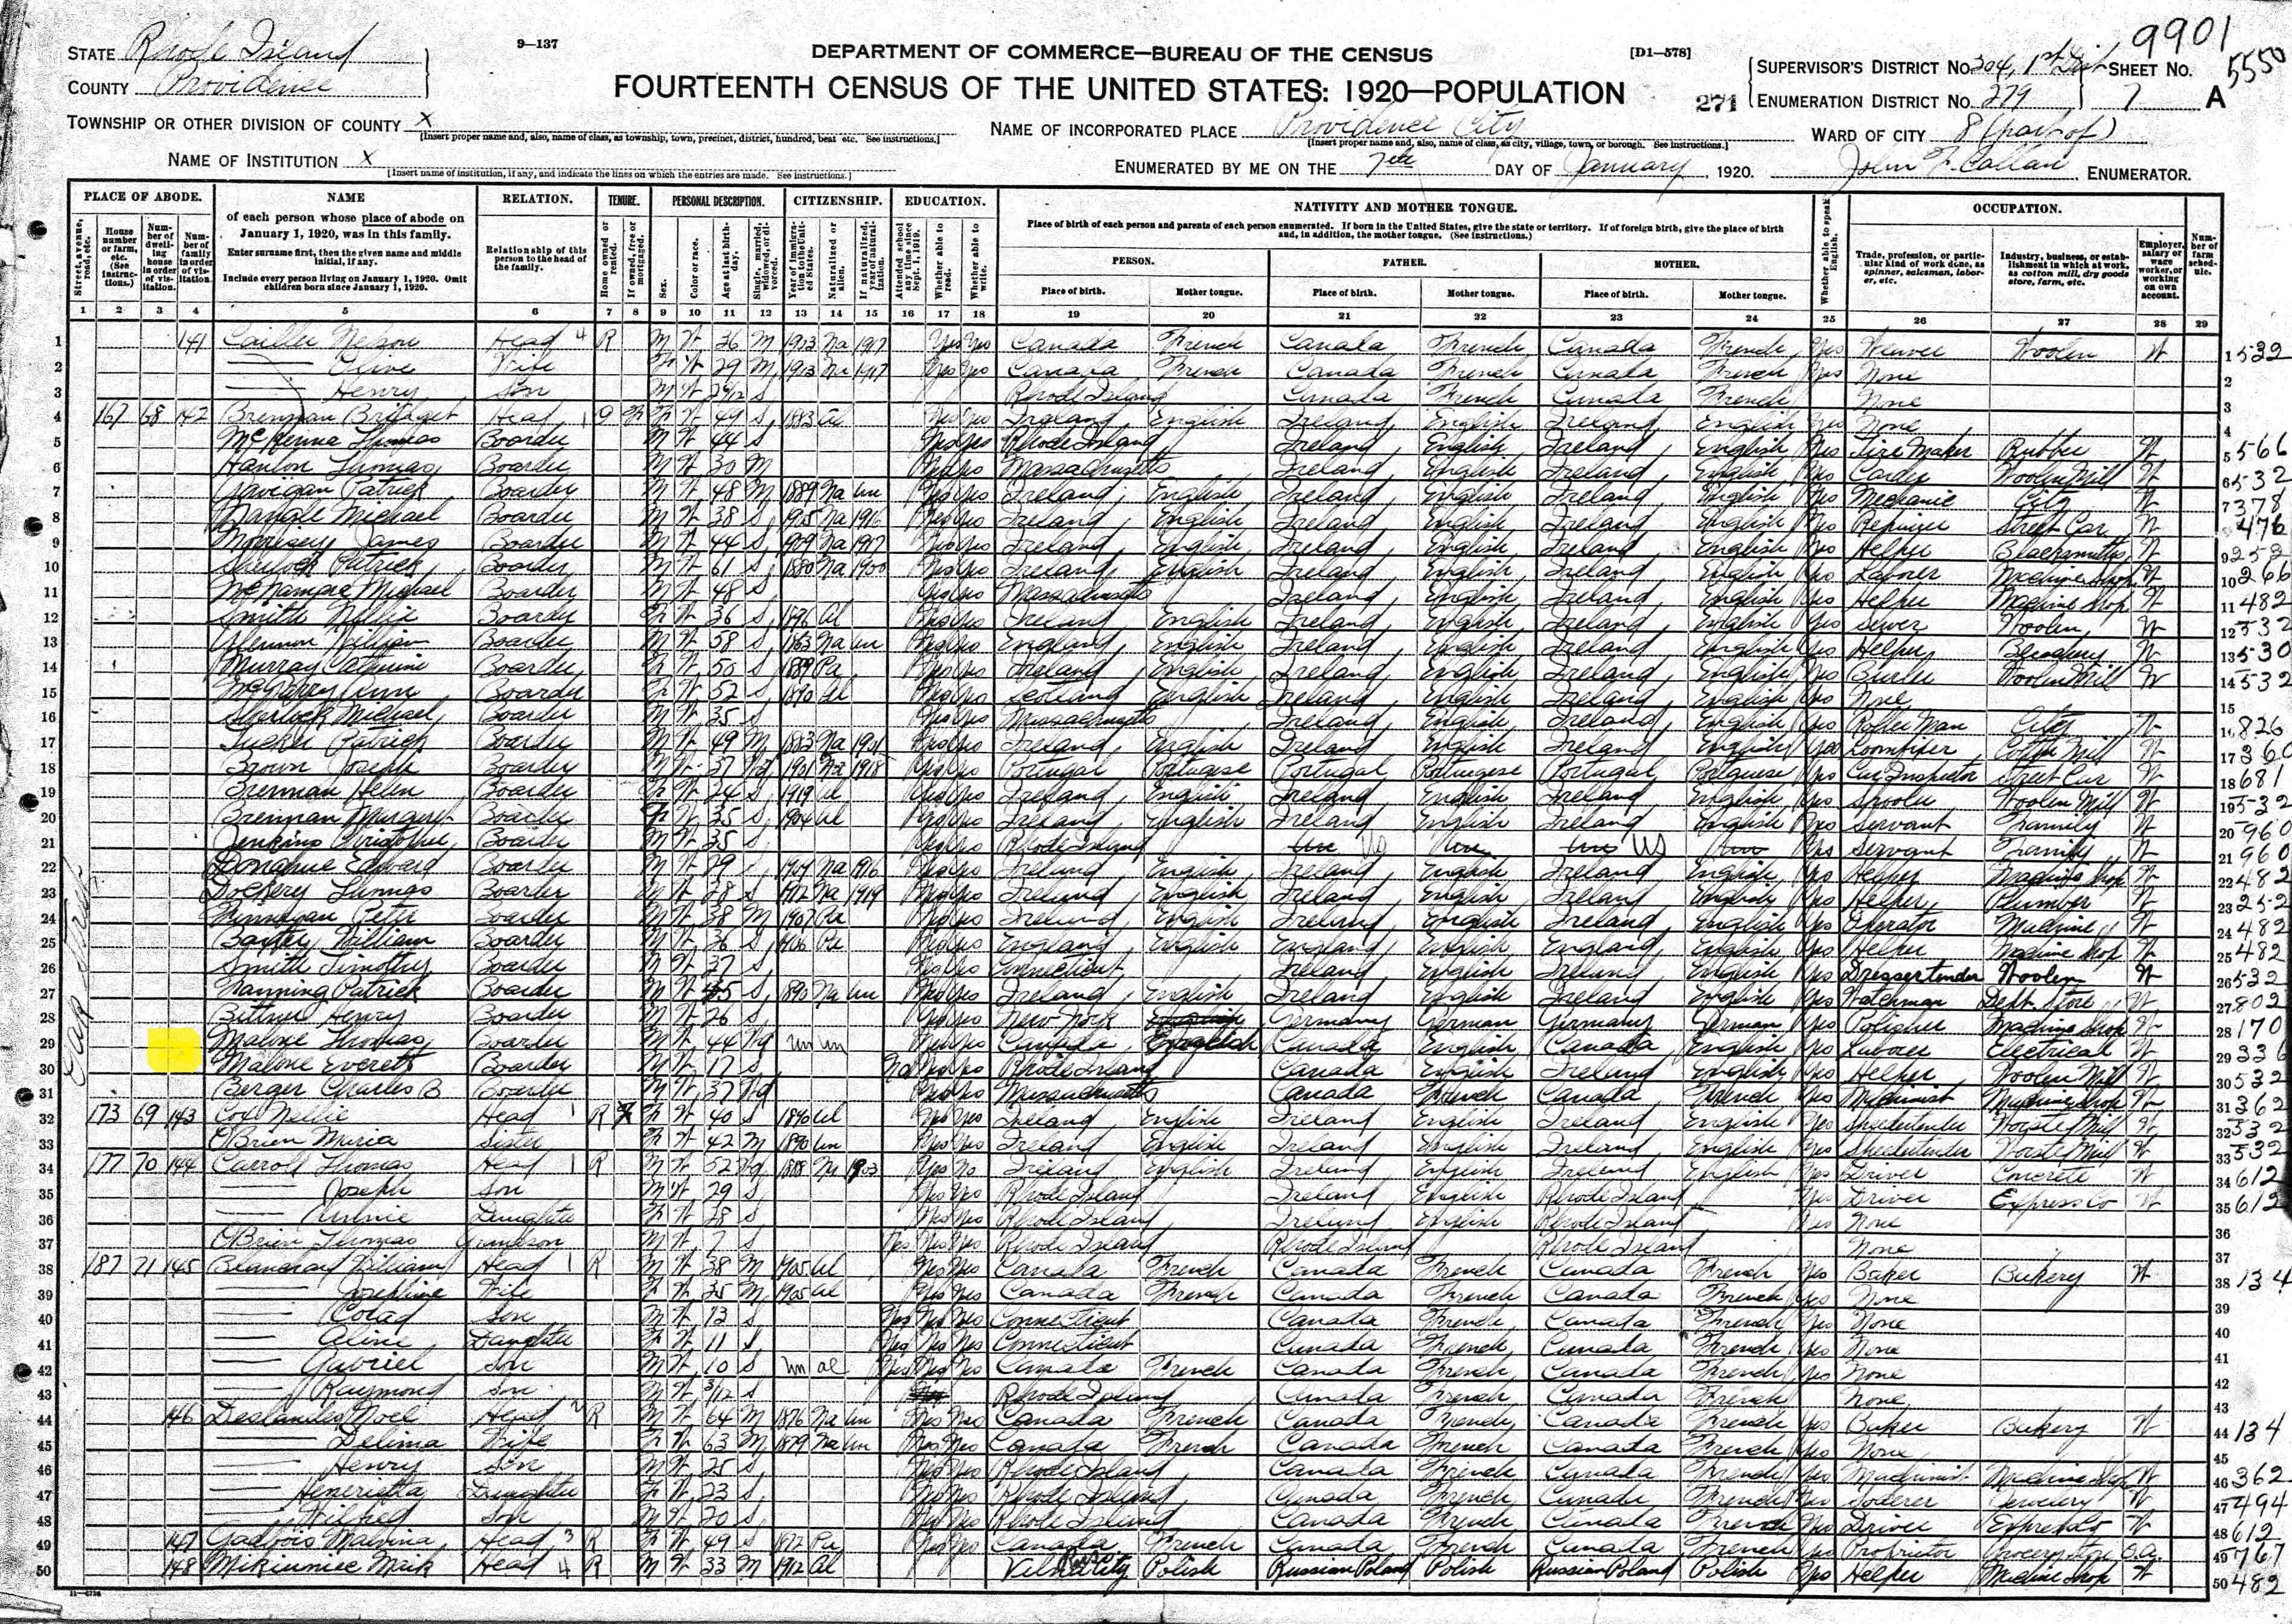 9901
5550
STATE Rhode Island
COUNTY Providence
9—137
DEPARTMENT OF COMMERCE—BUREAU OF THE CENSUS
[D1—578]
FOURTEENTH CENSUS OF THE UNITED STATES: 1920—POPULATION
271
SUPERVISOR'S DISTRICT No. 304, 1st Dist SHEET NO.
ENUMERATION DISTRICT No. 279 7 A
TOWNSHIP OR OTHER DIVISION OF COUNTY X
[Insert proper name and, also, name of class, as township, town, precinct, district, hundred, beat etc. See instructions.]
NAME OF INCORPORATED PLACE Providence City
[Insert proper name and, also, name of class, as city, village, town, or borough. See instructions.]
WARD OF CITY 8 (part of)
NAME OF INSTITUTION X
[Insert name of institution, if any, and indicate the lines on which the entries are made. See instructions.]
ENUMERATED BY ME ON THE 7th DAY OF January, 1920. John F. Callan ENUMERATOR.
PLACE OF ABODE. NAME RELATION. TENURE. PERSONAL DESCRIPTION. CITIZENSHIP. EDUCATION. NATIVITY AND MOTHER TONGUE. OCCUPATION.
of each person whose place of abode on January 1, 1920, was in this family.
Enter surname first, then the given name and middle initial, if any.
Include every person living on January 1, 1920. Omit children born since January 1, 1920.
Relationship of this person to the head of the family.
Place of birth of each person and parents of each person enumerated. If born in the United States, give the state or territory. If of foreign birth, give the place of birth and, in addition, the mother tongue. (See instructions.)
PERSON. FATHER. MOTHER.
Place of birth. Mother tongue. Place of birth. Mother tongue. Place of birth. Mother tongue.
Whether able to speak English.
Trade, profession, or particular kind of work done, as spinner, salesman, laborer, etc.
Industry, business, or establishment in which at work, as cotton mill, dry goods store, farm, etc.
Employer, salary or wage worker, or working on own account.
Number of farm schedule.
1 2 3 4 5 6 7 8 9 10 11 12 13 14 15 16 17 18 19 20 21 22 23 24 25 26 27 28 29
1 141 Cailler Nelson Head 4 R M W 36 M 1913 Na 1917 Yes Yes Canada French Canada French Canada French Yes Weaver Woolen W 1 532
2 Wife F W 29 M 1913 Na 1917 Yes Yes Canada French Canada French Canada French Yes None 2
3 Henry Son M W S Rhode Island Canada French Canada French None 3
4 167 68 142 Brennan Bridget Head 1 O F W 49 S 1883 Al Yes Yes Ireland English Ireland English Ireland English Yes None 4
5 McKenna Thomas Boarder M W 44 S Yes Yes Rhode Island Ireland English Ireland English Yes Tire Maker Rubber W 5 566
6 Hanlon Thomas Boarder M W 30 M Yes Yes Massachusetts Ireland English Ireland English Yes Carder Woolen Mill W 6 532
7 Gavigan Patrick Boarder M W 48 M 1889 Na un Yes Yes Ireland English Ireland English Ireland English Yes Mechanic City W 7 378
8 Michael Boarder M W 38 S 1905 Na 1916 Yes Yes Ireland English Ireland English Ireland English Yes Repairer Street Car W 476
9 Morrisey James Boarder M W 44 S 1909 Na 1917 Yes Yes Ireland English Ireland English Ireland English Yes Helper Blacksmiths W 9 252
10 Sherlock Patrick Boarder M W 61 S 1880 Na 1900 Yes Yes Ireland English Ireland English Ireland English Yes Laborer Machine Shop W 10 266
11 McNamara Michael Boarder M W 48 S Yes Yes Massachusetts Ireland English Ireland English Yes Helper Machine Shop W 11 482
12 Smith Nellie Boarder F W 36 S 1896 Al Yes Yes Ireland English Ireland English Ireland English Yes Sewer Woolen W 12 532
13 Glennon William Boarder M W 58 S 1863 Na un Yes Yes England English Ireland English Ireland English Yes Helper Bleachery W 13 530
14 Murray Catherine Boarder F W 50 S 1889 Pa Yes Yes Ireland English Ireland English Ireland English Yes Burler Woolen Mill W 14 532
15 Ann Boarder F W 52 S 1890 Al Yes Yes Scotland English Ireland English Ireland English Yes None 15
16 Sherlock Michael Boarder M W 35 S Yes Yes Massachusetts Ireland English Ireland English Yes Roller Man City W 16 826
17 Tucker Patrick Boarder M W 49 M 1883 Na 1901 Yes Yes Ireland English Ireland English Ireland English Yes Loomfixer Cotton Mill W 17 360
18 Brown Joseph Boarder M W 37 Wd 1901 Na 1918 Yes Yes Portugal Portugese Portugal Portugese Portugal Portugese Yes Car Inspector Street Car W 18 681
19 Brennan Helen Boarder F W 24 S 1919 Al Yes Yes Ireland English Ireland English Ireland English Yes Spooler Woolen Mill W 19 532
20 Brennan Margaret Boarder F W 35 S 1904 Al Yes Yes Ireland English Ireland English Ireland English Yes Servant Family W 20 960
21 Jenkins Christopher Boarder M W 35 S Yes Yes Rhode Island Un US Un Un US Un Yes Servant Family W 21 960
22 Donahue Edward Boarder M W 29 S 1909 Na 1916 Yes Yes Ireland English Ireland English Ireland English Yes Helper Machine Shop W 22 482
23 Dockery Thomas Boarder M W 28 S 1912 Na 1919 Yes Yes Ireland English Ireland English Ireland English Yes Helper Plumber W 23 252
24 Finnegan Peter Boarder M W 38 M 1907 Pa Yes Yes Ireland English Ireland English Ireland English Yes Operator Machine W 24 482
25 Baxter William Boarder M W 36 S 1906 Pa Yes Yes England English England English England English Yes Helper Machine Shop W 25 482
26 Smith Timothy Boarder M W 37 S Yes Yes Connecticut Ireland English Ireland English Yes Dresser Tender Woolen W 26 532
27 Manning Patrick Boarder M W 45 S 1890 Na un Yes Yes Ireland English Ireland English Ireland English Yes Watchman Dept. Store W 27 802
28 Bittner Henry Boarder M W 26 S Yes Yes New York Germany German Germany German Yes Polisher Machine Shop W 28 170
29 Malone Thomas Boarder M W 44 Wd un un Yes Yes Canada English Canada English Canada English Yes Laborer Electrical W 29 336
30 Malone Everett Boarder M W 17 S No Yes Yes Rhode Island Canada English Ireland English Yes Helper Woolen Mill W 30 532
31 Berger Charles B Boarder M W 37 Wd Yes Yes Massachusetts Canada French Canada French Yes Machinist Machine Shop W 31 362
32 173 69 143 Cox Nellie Head 1 R F W 40 S 1890 Al Yes Yes Ireland English Ireland English Ireland English Yes Worsted Mill W 32 532
33 OBrien Maria Sister F W 42 M 1890 un Yes Yes Ireland English Ireland English Ireland English Yes Worsted Mill W 33 532
34 177 70 144 Carroll Thomas Head 1 R M W 52 Wd 1888 Na 1903 Yes No Ireland English Ireland English Ireland English Yes Driver Concrete W 34 612
35 Joseph Son M W 29 S Yes Yes Rhode Island Ireland English Rhode Island Yes Driver Express Co W 35 612
36 Daughter F W 28 S Yes Yes Rhode Island Ireland English Rhode Island Yes None 36
37 OBrien Thomas Grandson M W 7 S Yes Yes Yes Rhode Island Rhode Island Rhode Island None 37
38 187 71 145 William Head 1 R M W 38 M 1905 Al Yes Yes Canada French Canada French Canada French Yes Baker Bakery W 38 134
39 Josephine Wife F W 35 M 1905 Al Yes Yes Canada French Canada French Canada French Yes None 39
40 Son M W 13 S Yes Yes Yes Connecticut Canada French Canada French Yes None 40
41 Aline Daughter F W 11 S Yes Yes Yes Connecticut Canada French Canada French Yes None 41
42 Gabriel Son M W 10 S un al Yes Yes Yes Canada French Canada French Canada French Yes None 42
43 Raymond Son M W 3/12 S Rhode Island Canada French Canada French None 43
44 146 Deslandes Noel Head 2 R M W 64 M 1876 Na un Yes Yes Canada French Canada French Canada French Yes Baker Bakery W 44 134
45 Delima Wife F W 63 M 1879 Na un Yes Yes Canada French Canada French Canada French Yes None 45
46 Henry Son M W 25 S Yes Yes Rhode Island Canada French Canada French Yes Machinist Machine Shop W 46 362
47 Henrietta Daughter F W 23 S Yes Yes Rhode Island Canada French Canada French Yes Soderer Jewelery W 47 494
48 Wilfred Son M W 20 S Yes Yes Rhode Island Canada French Canada French Yes Driver Express Co W 48 612
49 147 Gadbois Malvina Head 3 R F W 49 S 1872 Pa Yes Yes Canada French Canada French Canada French Yes Proprietor Grocery Store O.A. 49 767
50 148 Mikinniec Maik Head 4 R M W 33 M 1912 Al Vilna City Polish Russian Poland Polish Russian Poland Polish Yes Helper Machine Shop W 50 482